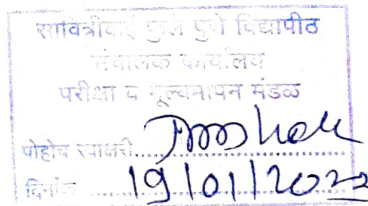 सावित्रीबाई फुले पुणे विद्यापीठ
संचालक कार्यालय
परीक्षा व मूल्यमापन मंडळ
पोहोच स्वाक्षरी
दिनांक 19/01/2022